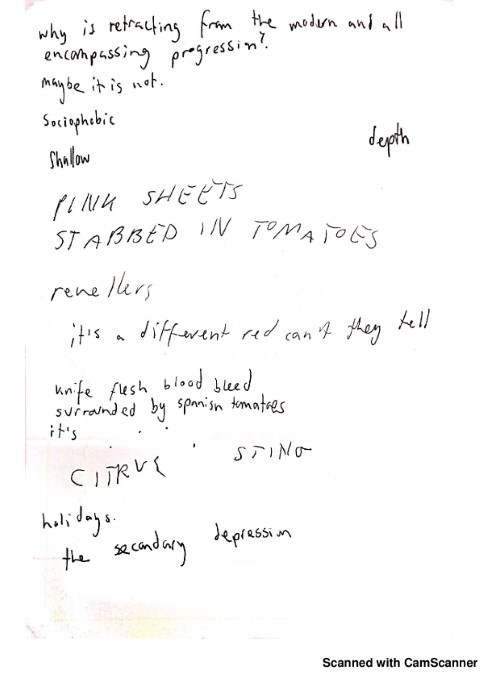 why is retracting from the modern and all
encompassing progression?
maybe it is not.
Sociophobic
depth
Shallow
PINK SHEETS
STABBED IN TOMATOES
revellers
it's a different red can't they tell
knife flesh blood bleed
surrounded by spanish tomatoes
it's
STING
CITRUS
holidays.
the secondary depression
Scanned with CamScanner